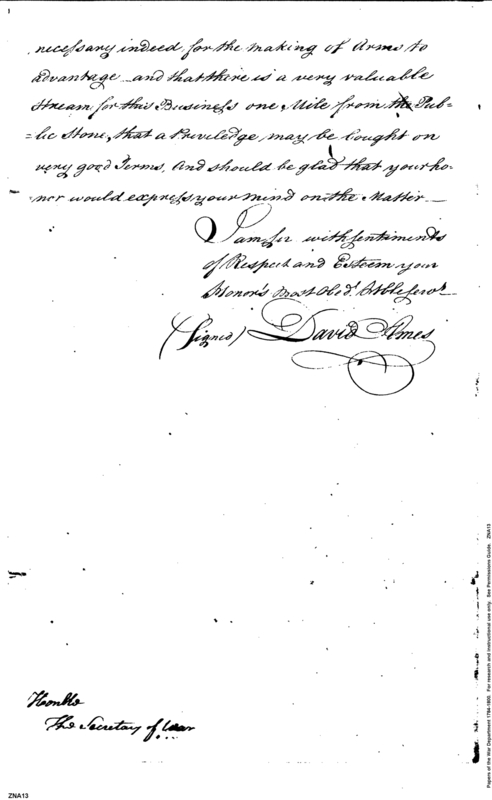 necessary indeed for the making of Arms to
advantage and that there is a very valuable
Stream for this Business one Mile from the Pub-
=lic Store, that a Priviledge may be bought on
very good Terms, And should be glad that your ho-
=nor would express your mind on the Matter
I am sir with sentiments
of Respect and Esteem your
Honor's Most Obed.t Hble Serv.t
(Signed) David Ames
Honble
The Secretary of War
ZNA13
Papers of the War Department 1784-1800. For research and instructional use only. See Permissions Guide. ZNA13